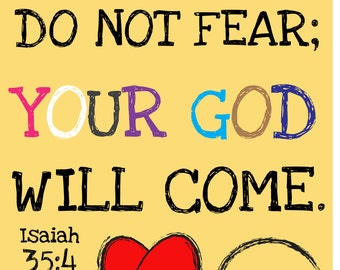 DO NOT FEAR;
YOUR GOD
WILL COME.
Isaiah
35:4